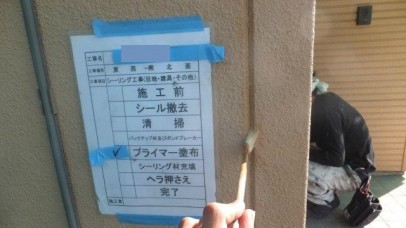 工事名
工事場所 東面～南北面
工事項目 シーリング工事(目地・建具・その他)
施工前
シール撤去
清掃
バックアップ材及びボンドブレーカー
✓ プライマー塗布
シーリング材充填
ヘラ押さえ
完了
施工者